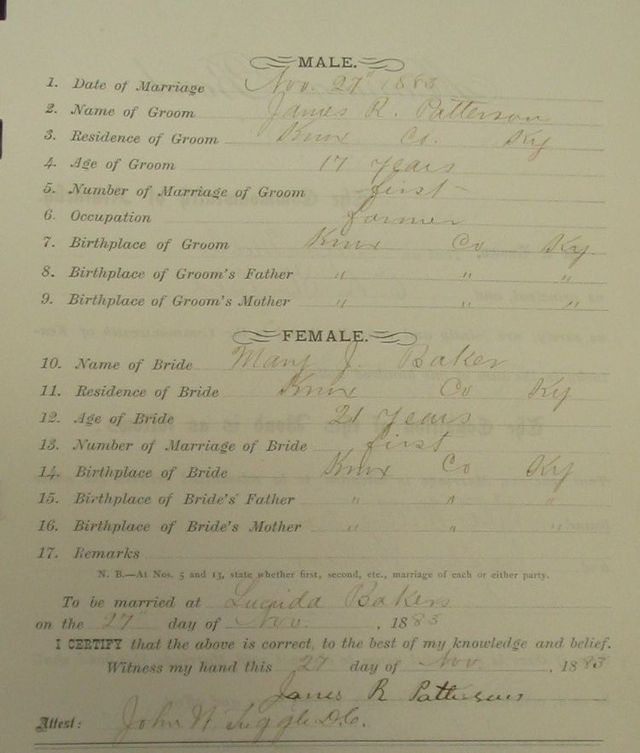 MALE.
1. Date of Marriage Nov. 27" 1883
2. Name of Groom James R. Patterson
3. Residence of Groom Knox Co. Ky
4. Age of Groom 17 years
5. Number of Marriage of Groom first
6. Occupation farmer
7. Birthplace of Groom Knox Co Ky.
8. Birthplace of Groom's Father " " "
9. Birthplace of Groom's Mother " " "
FEMALE.
10. Name of Bride Mary J. Baker
11. Residence of Bride Knox Co Ky
12. Age of Bride 21 years
13. Number of Marriage of Bride first
14. Birthplace of Bride Knox Co Ky
15. Birthplace of Bride's Father " " "
16. Birthplace of Bride's Mother " " "
17. Remarks
N. B.—At Nos. 5 and 13, state whether first, second, etc., marriage of each or either party.
To be married at Bakers
on the 27" day of Nov. , 1883
I CERTIFY that the above is correct, to the best of my knowledge and belief.
Witness my hand this 27 day of Nov. , 1883
James R Patterson
Attest: John W D.C.